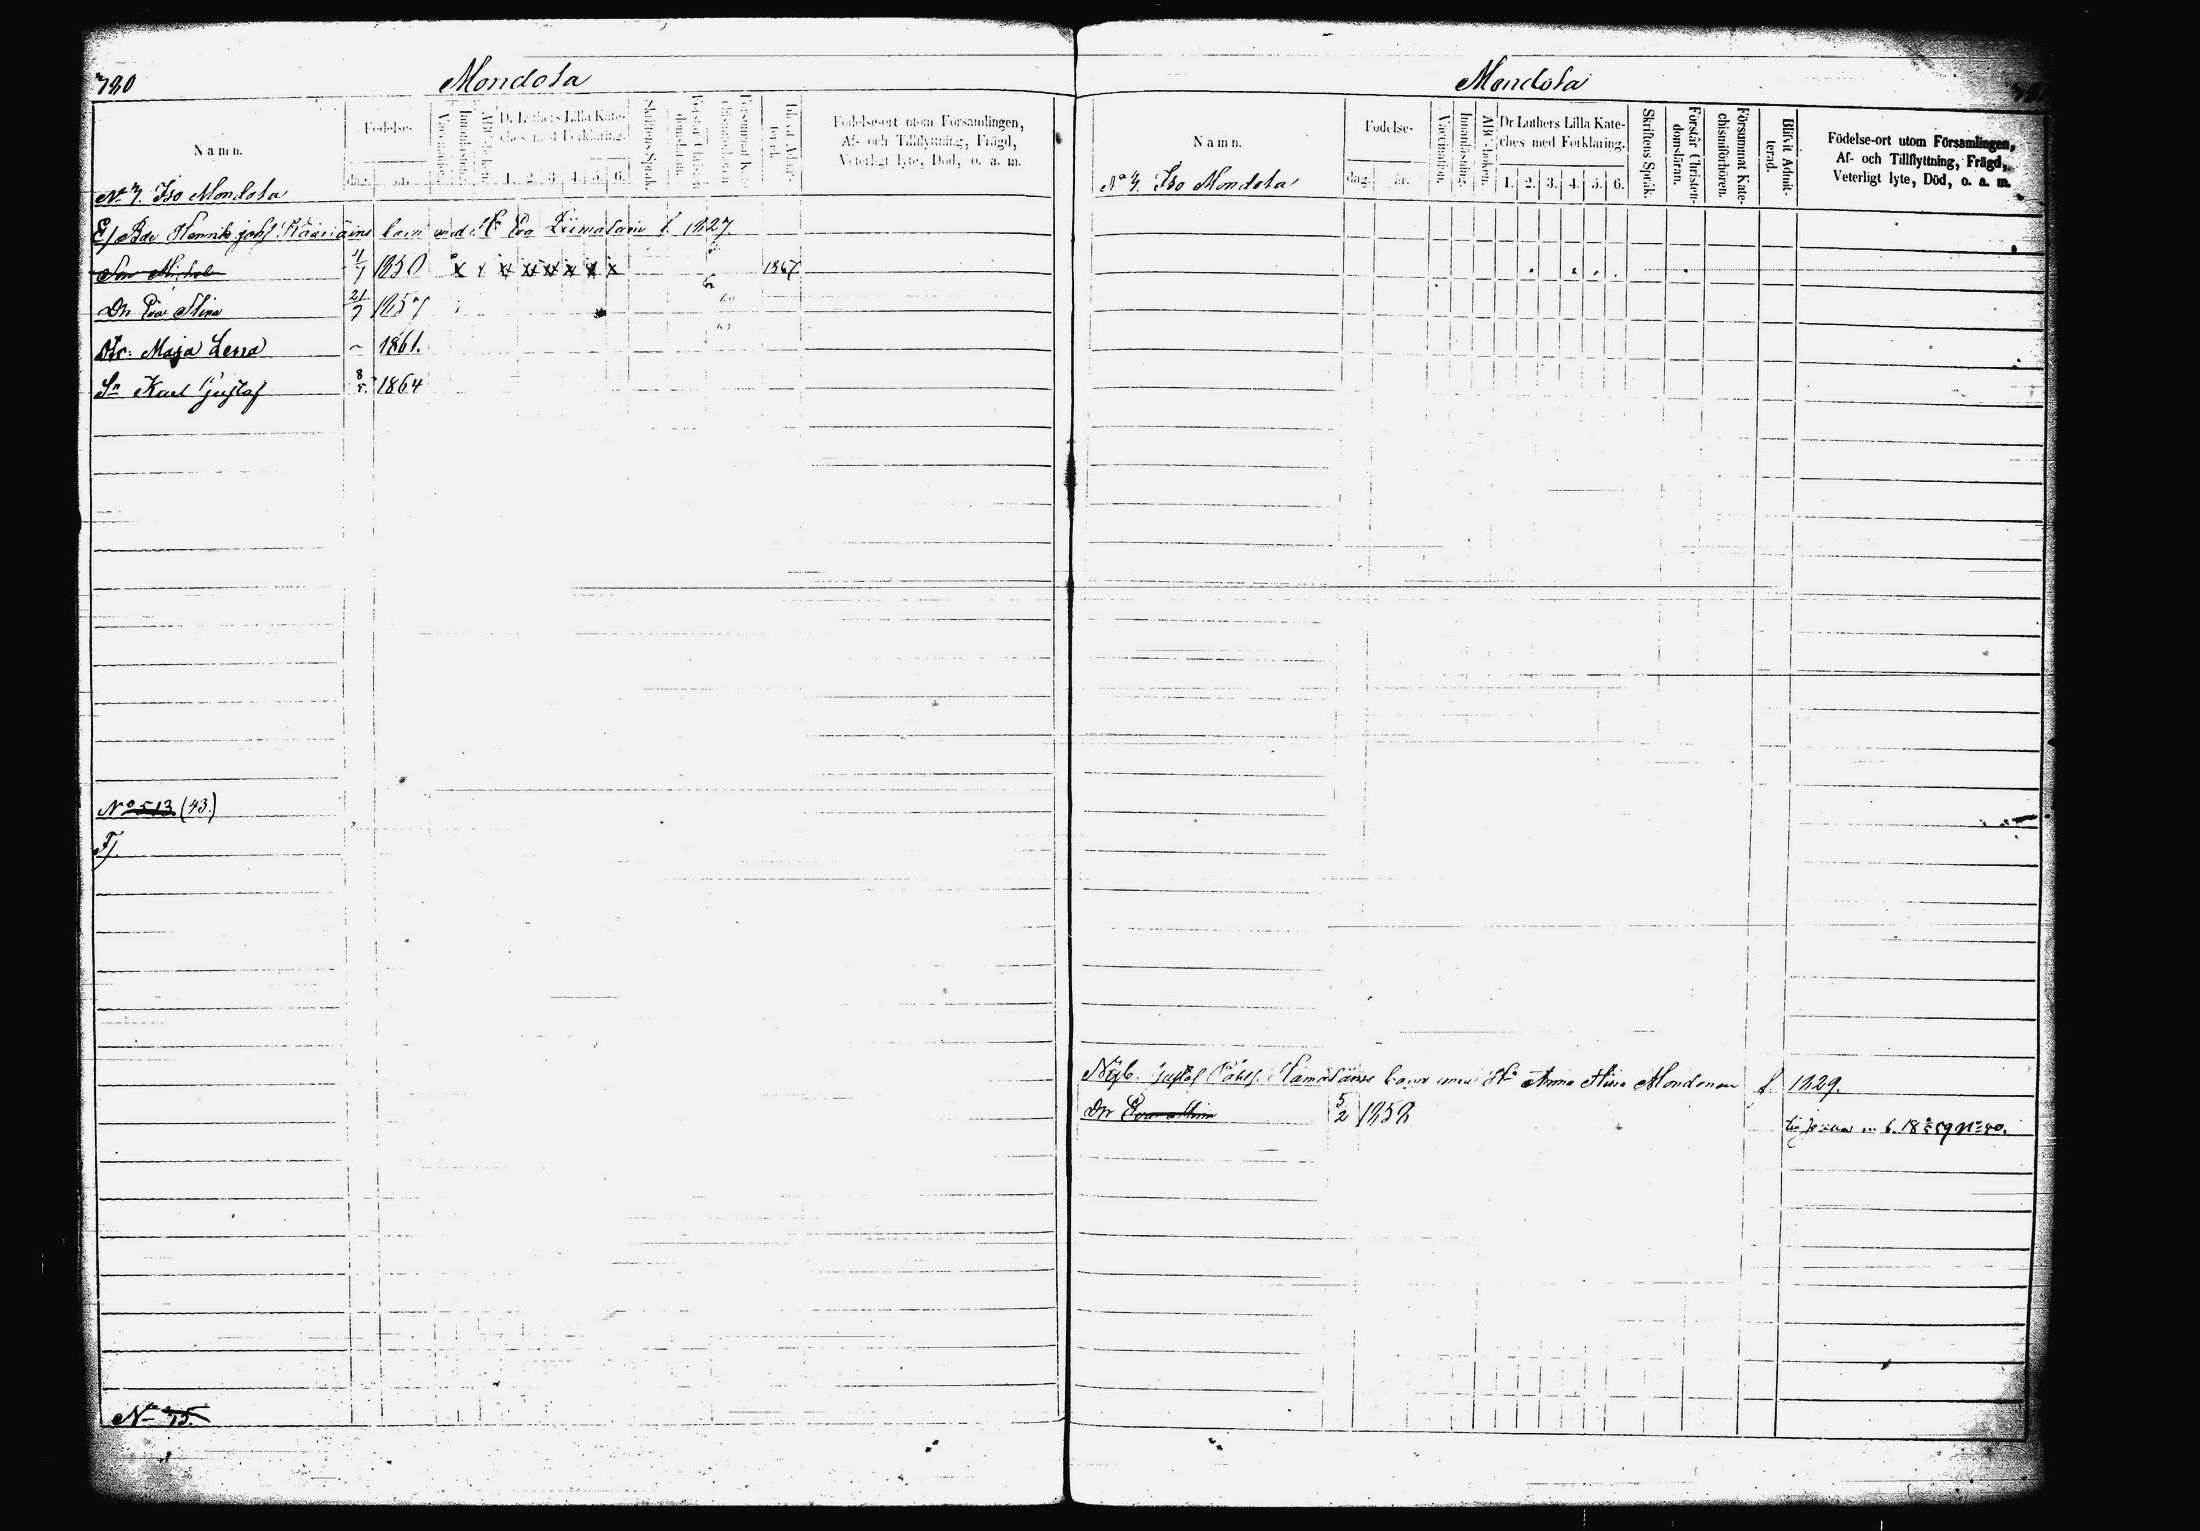 720
Mondola
Namn.
Födelse-
dag.
år.
Vaccination.
Innanläsning.
ABC-boken.
Dr Luthers Lilla Kate-
ches med Förklaring.
1. 2. 3. 4. 5. 6.
Skriftens Språk.
Förstår Christen-
domsläran.
Försummat Kate-
chismiförhören.
Blifvit Admit-
terad.
Födelse-ort utom Församlingen,
Af- och Tillflyttning, Frägd,
Veterligt lyte, Död, o. a. m.
Iso Mondola
Henrik Johs barn med H Eva f. 1827.
Son Michel 1850 1867
Dr Eva Stina 21/7 1857
Dtr: Maja Lena - 1861.
Sn Karl Gustaf 8/5 1864
No 513 (43.)
F/.
N 75.
Mondola
Namn.
Födelse-
dag.
år.
Vaccination.
Innanläsning.
ABC-boken.
Dr Luthers Lilla Kate-
ches med Förklaring.
1. 2. 3. 4. 5. 6.
Skriftens Språk.
Förstår Christen-
domsläran.
Försummat Kate-
chismiförhören.
Blifvit Admit-
terad.
Födelse-ort utom Församlingen,
Af- och Tillflyttning, Frägd,
Veterligt lyte, Död, o. a. m.
Iso Mondola
Gustaf barn med H Anna Stina Mondonen f. 1829.
Dr Eva Stina 5/2 1852